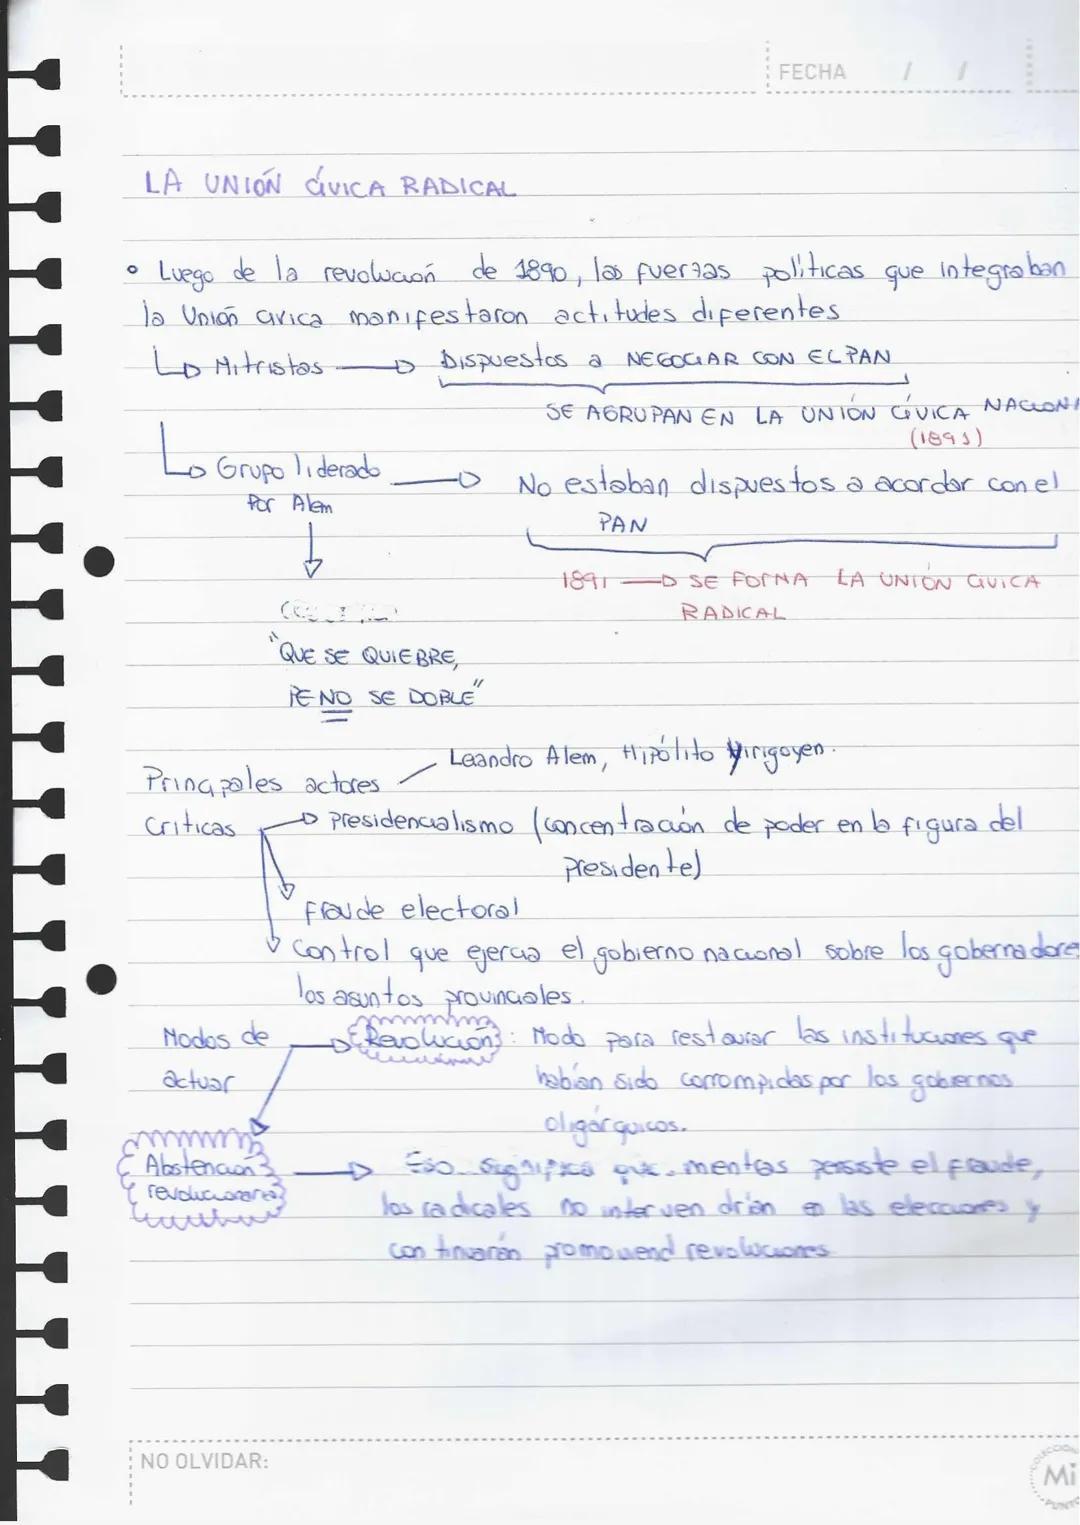 FECHA / /
LA UNIÓN CÍVICA RADICAL
° Luego de la revolución de 1890, las fuerzas políticas que integraban
la Unión cívica manifestaron actitudes diferentes
Mitristas → Dispuestos a NEGOCIAR CON EL PAN
SE AGRUPAN EN LA UNIÓN CÍVICA NACION
(1891)
Grupo liderado → No estaban dispuestos a acordar con el
Por Alem PAN
1891 → SE FORMA LA UNIÓN CIVICA
RADICAL
"QUE SE QUIEBRE,
PE NO SE DOBLE"
Leandro Alem, Hipólito Yirigoyen.
Principales actores
Críticas → Presidencialismo (concentración de poder en la figura del
presidente)
Fraude electoral
Control que ejercia el gobierno nacional sobre los gobernadores
los asuntos provinciales.
Modos de → Revolución: Modo para restaurar las instituciones que
actuar habían sido corrompidas por los gobiernos
oligárquicos.
Abstención → Eso significa que mentas persiste el fraude,
revolucionaria los radicales no intervendrían en las elecciones y
continuarán promowend revoluciones
NO OLVIDAR:
COLECCION
Mi
PUNTO